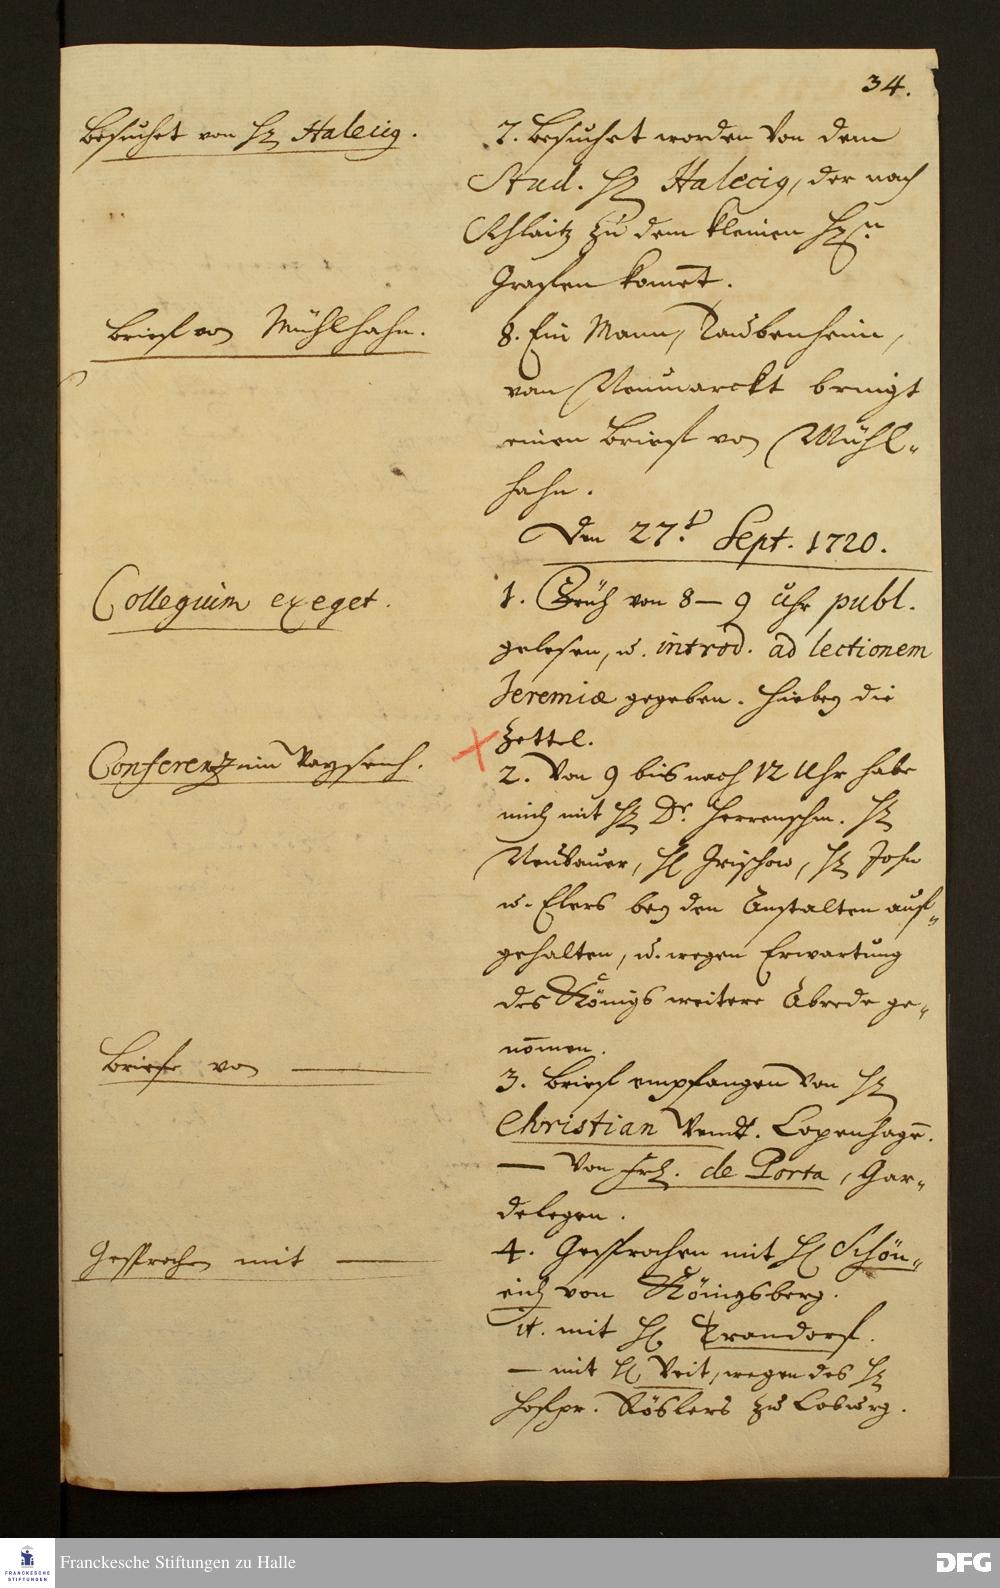 34.
Besuchet von H. Halecig.
7. Besuchet worden von dem
Stud. H. Halecig, der nach
Schlaitz zu dem kleinen H.n
Graffen kom̄et.
Brieff von Mühlhahn.
8. Ein Mann, Taubenheim,
von Neumarckt bringt
einen Brieff von Mühl-
hahn.
Den 27.t Sept. 1720.
Collegium exeget.
1. Früh von 8–9 Uhr publ.
gelesen, u. introd. ad lectionem
Jeremiæ gegeben. Hiebey die
Zettel.
Conferentz im Waysenh.
2. Von 9 bis nach 12 Uhr habe
mich mit H. Dr. Herrenschm. H.
Neubauer, H. Grischow, H. John
u. Elers bey den Anstalten auf-
gehalten, u. wegen Erwartung
des Königs weitere Abrede ge-
nom̄en.
Briefe von —
3. Brieff empfangen von H.
Christian Wendt. Copenhagē.
— Von Frl. de Porta, Gar-
delegen.
Gesprochen mit —
4. Gesprochen mit H. Schön-
eich von Königsberg.
it. mit H. Trandorf.
— mit H. Veit, wegen des H.
Hoffpr. Röslers zu Coburg.
FRANCKESCHE
STIFTUNGEN
Franckesche Stiftungen zu Halle
DFG